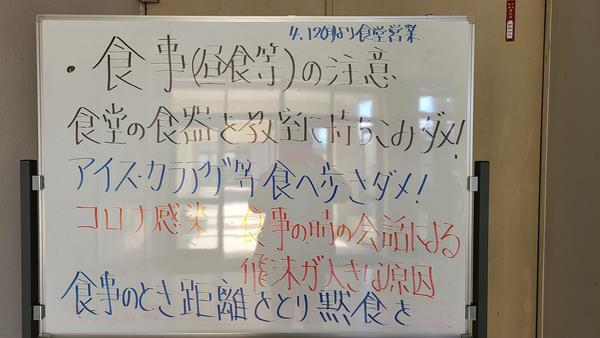 4.12(月)より食堂営業
・食事(昼食等)の注意
食堂の食器を教室に持ちこみダメ!
アイス・カラアゲ等食べ歩きダメ!
コロナ感染…食事の時の会話による
飛沫が大きな原因
食事のとき距離をとり黙食を